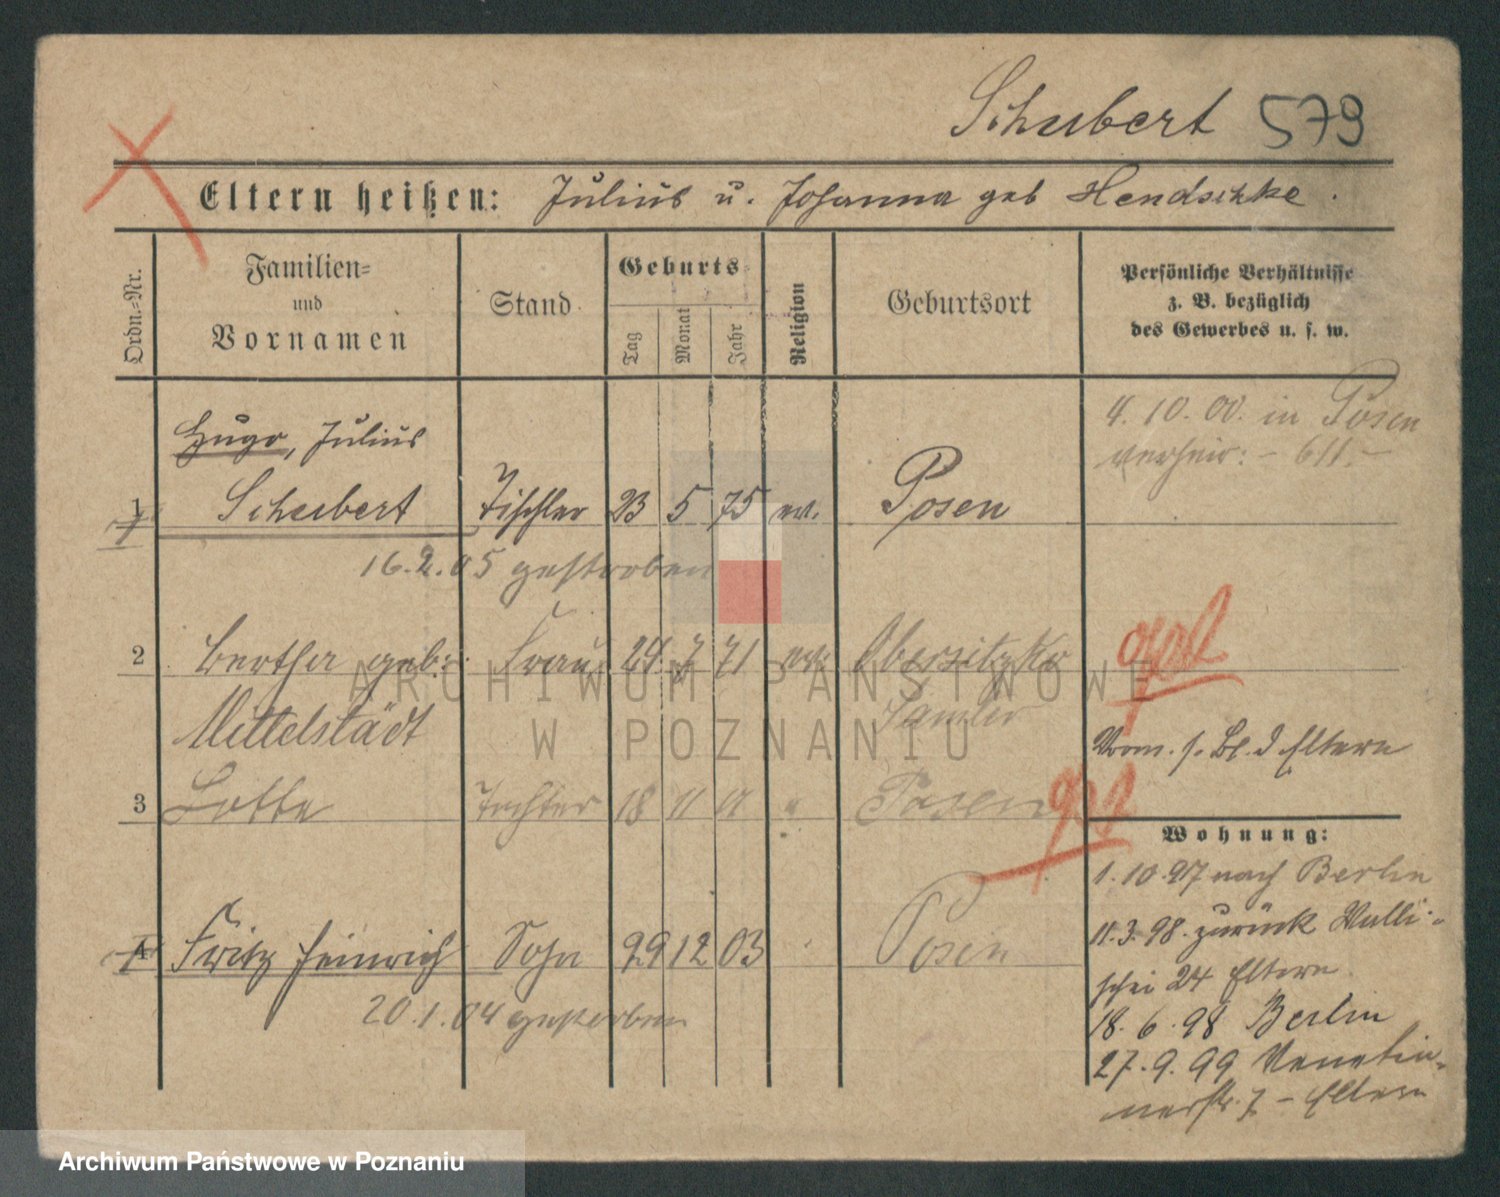 Schubert 579
Eltern heißen: Julius u. Johanna geb Hendschke.
Ordn.-Nr.
Familien-
und
Vornamen
Stand
Geburts-
Tag
Monat
Jahr
Religion
Geburtsort
Persönliche Verhältnisse
z. B. bezüglich
des Gewerbes u. s. w.
4.10.00. in Posen
verheir: - 611.-
Hugo, Julius
1 Schubert Tischler 23 5 75 ev. Posen
16.2.05 gestorben
2 Bertha geb: Frau 24 7 71 ev. Obersitzko
Mittelstädt Samter
Vorm. s. Bl. d Eltern
3 Lotte Tochter 18 11 01 " Posen
Wohnung:
1.10.97 nach Berlin
11.3.98. zurück Walli-
schei 24 Eltern
4 Fritz Heinrich Sohn 29 12 03 Posen
20.1.04 gestorben
18.6.98 Berlin
27.9.99 Venetia-
nerstr. 7 - Eltern
ARCHIWUM PAŃSTWOWE
W POZNANIU
Archiwum Państwowe w Poznaniu